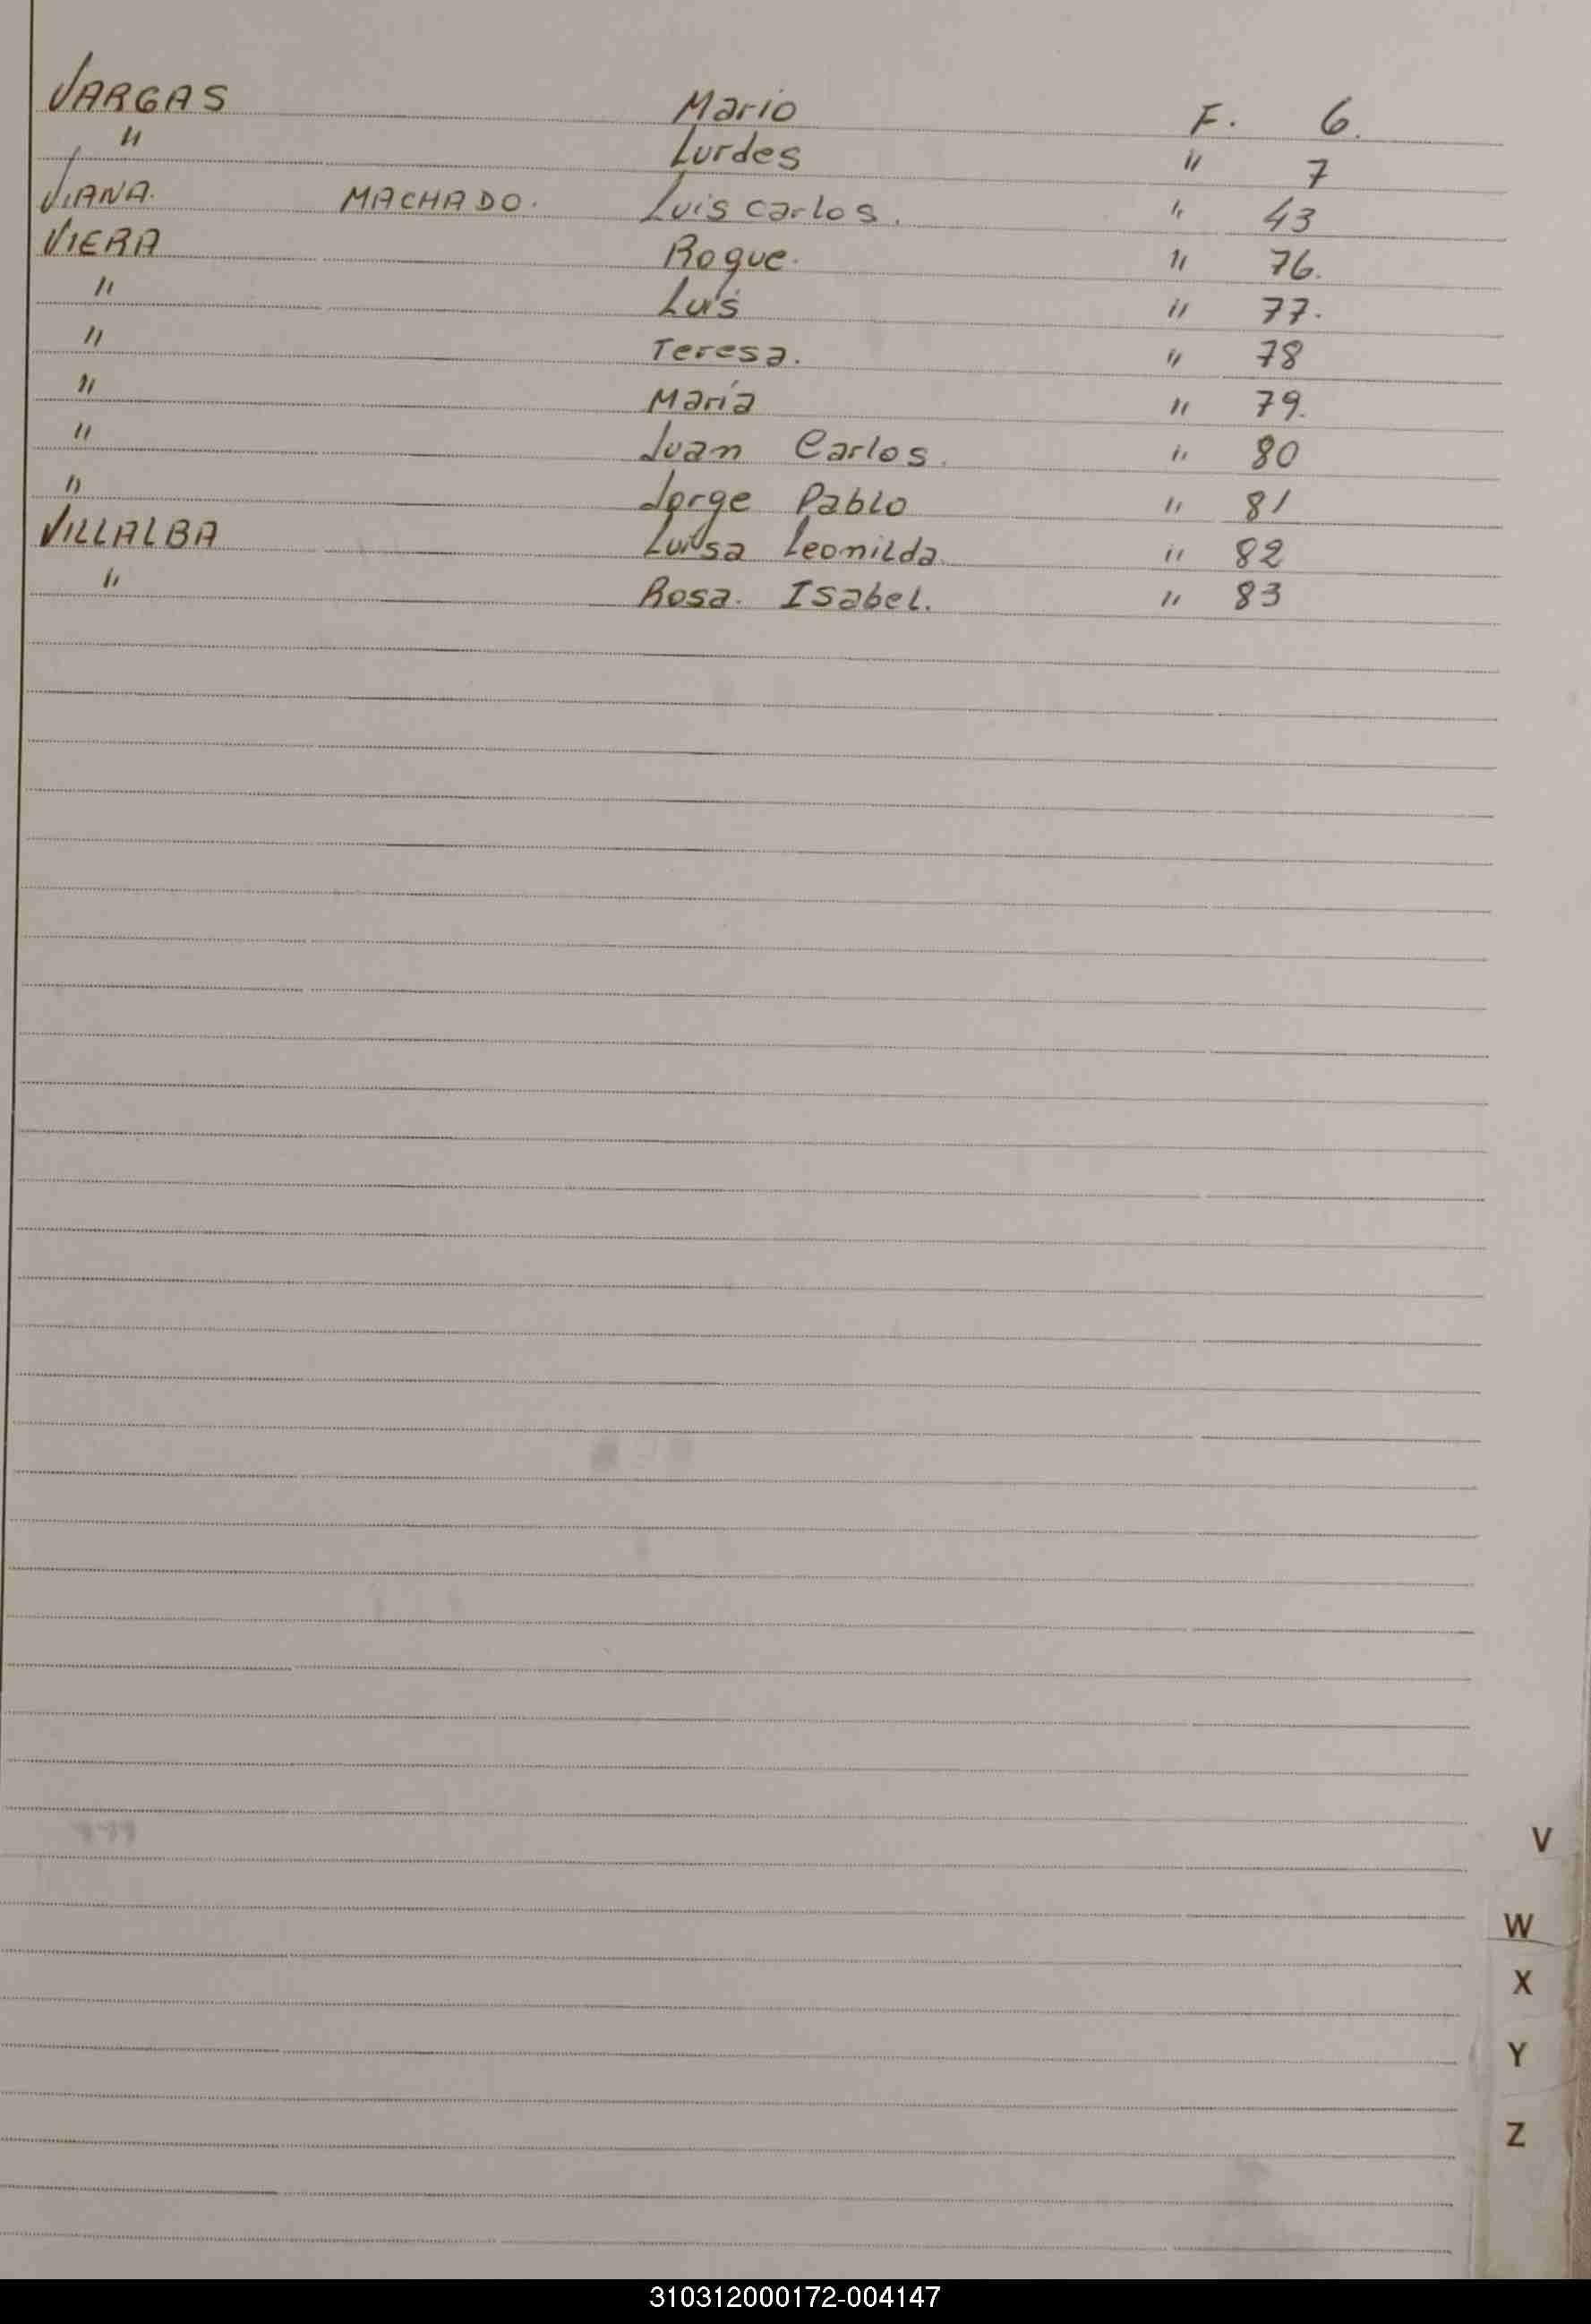 VARGAS Mario F. 6.
" Lurdes " 7
VIANA. MACHADO. Luis carlos. " 43
VIERA Roque. " 76.
" Luis " 77.
" Teresa. " 78
" María " 79.
" Juan Carlos. " 80
" Jorge Pablo " 81
VILLALBA Luisa Leonilda. " 82
" Rosa. Isabel. " 83
V
W
X
Y
Z
310312000172-004147